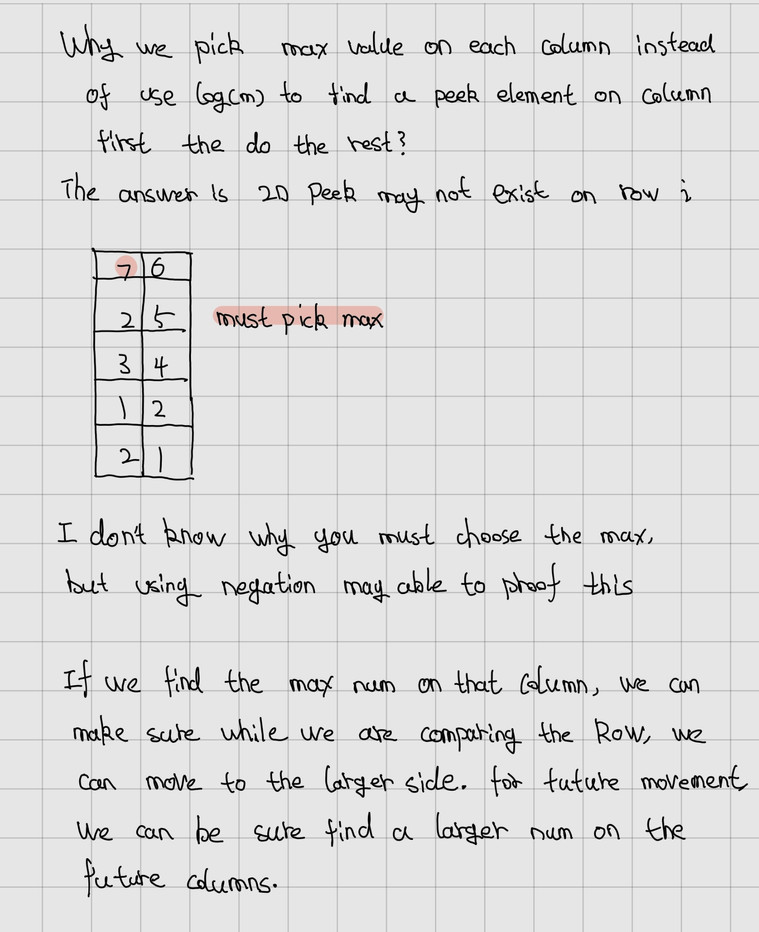 Why we pick max value on each column instead
of use log(m) to find a peek element on column
first the do the rest?
The answer is 2D Peek may not exist on row i
7 6
2 5 must pick max
3 4
1 2
2 1
I don't know why you must choose the max,
but using negation may able to proof this
If we find the max num on that column, we can
make sure while we are comparing the Row, we
can move to the larger side. for future movement
we can be sure find a larger num on the
future columns.